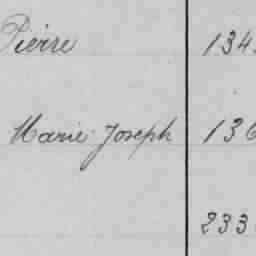 Pierre 134
Marie Joseph 136
233